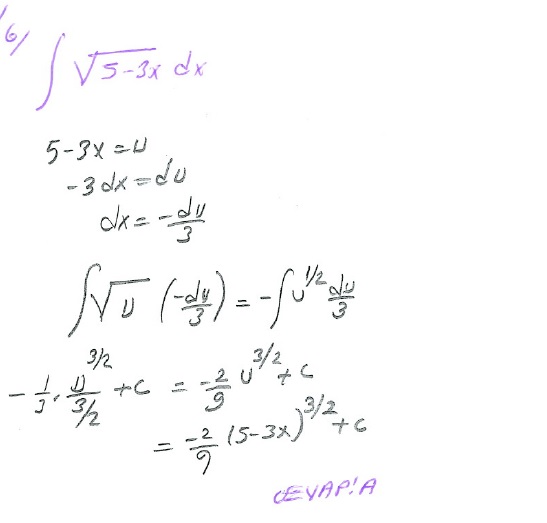 6/
∫ √5-3x dx
5-3x=u
-3dx=du
dx=-du/3
∫√u (-du/3) = -∫u^1/2 du/3
-1/3 · u^3/2 / 3/2 + c = -2/9 u^3/2 + c
= -2/9 (5-3x)^3/2 + c
CEVAP!A